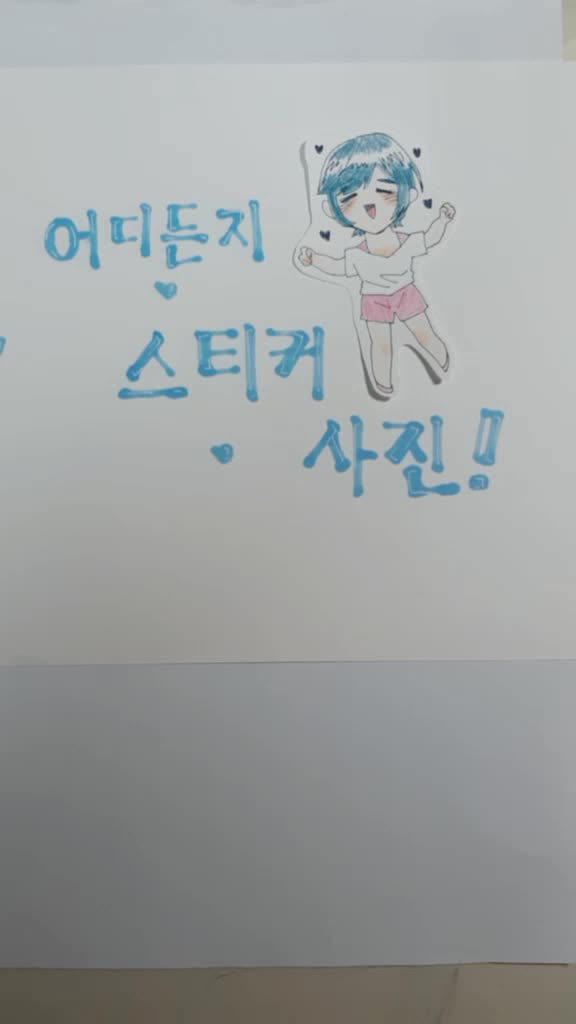 어디든지
스티커
사진!